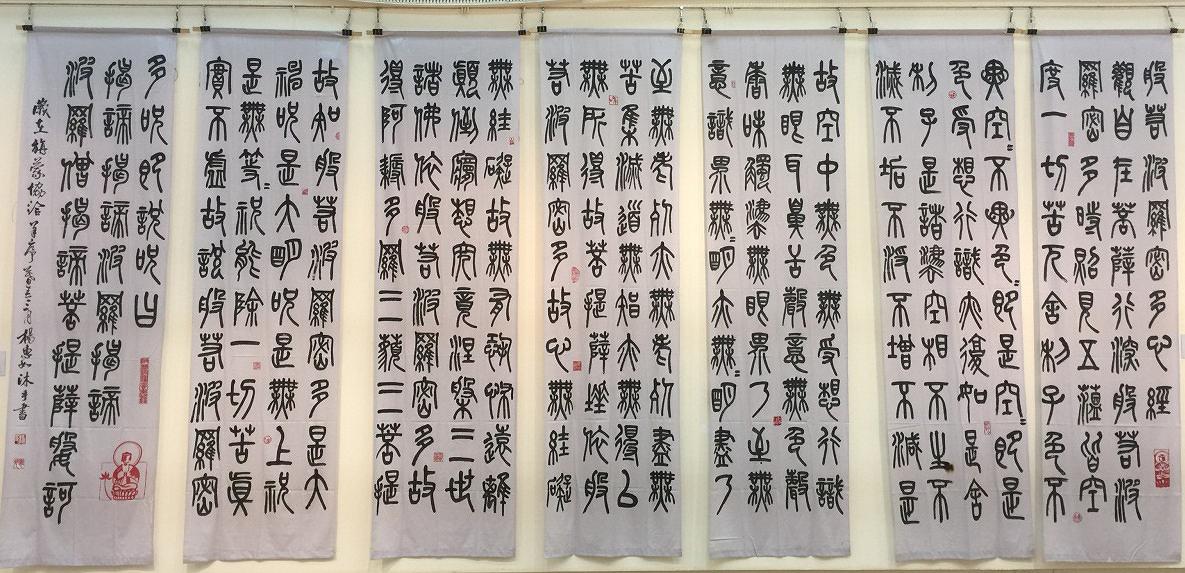 般若波羅密多心經
觀自在菩薩行深般若波
羅密多時照見五蘊皆空
度一切苦厄舍利子色不
異空〻不異色〻即是空〻即是
色受想行識亦復如是舍
利子是諸灋空相不生不
滅不垢不淨不增不減是
故空中無色無受想行識
無眼耳鼻舌聲意無色聲
香味觸灋無眼界乃至無
意識界無〻明亦無〻明盡乃
至無老死亦無老死盡無
苦集滅道無智亦無得以
無所得故菩提薩埵依般
若波羅密多故心無罣礙
無罣礙故無有恐怖遠離
顛倒夢想究竟涅槃三世
諸佛依般若波羅密多故
得阿耨多羅三藐三菩提
故知般若波羅密多是大
神呪是大明呪是無上呪
是無等〻呪能除一切苦真
實不虛故說般若波羅密
多呪即說呪曰
揭諦揭諦波羅揭諦
波羅僧揭諦菩提薩婆訶
歲在旃蒙協洽羊序三月楊惠如沐手書